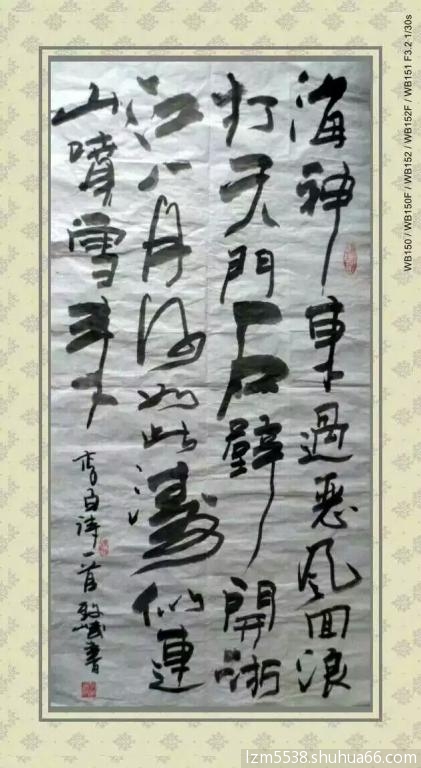 海神東過恶风回浪
打天門石壁開浙
江八月何如此濤似連
山噴雪來
李白诗一首 書
WB150 / WB150F / WB152 / WB152F / WB151 F3.2 1/30s
lzm5538.shuhua66.com